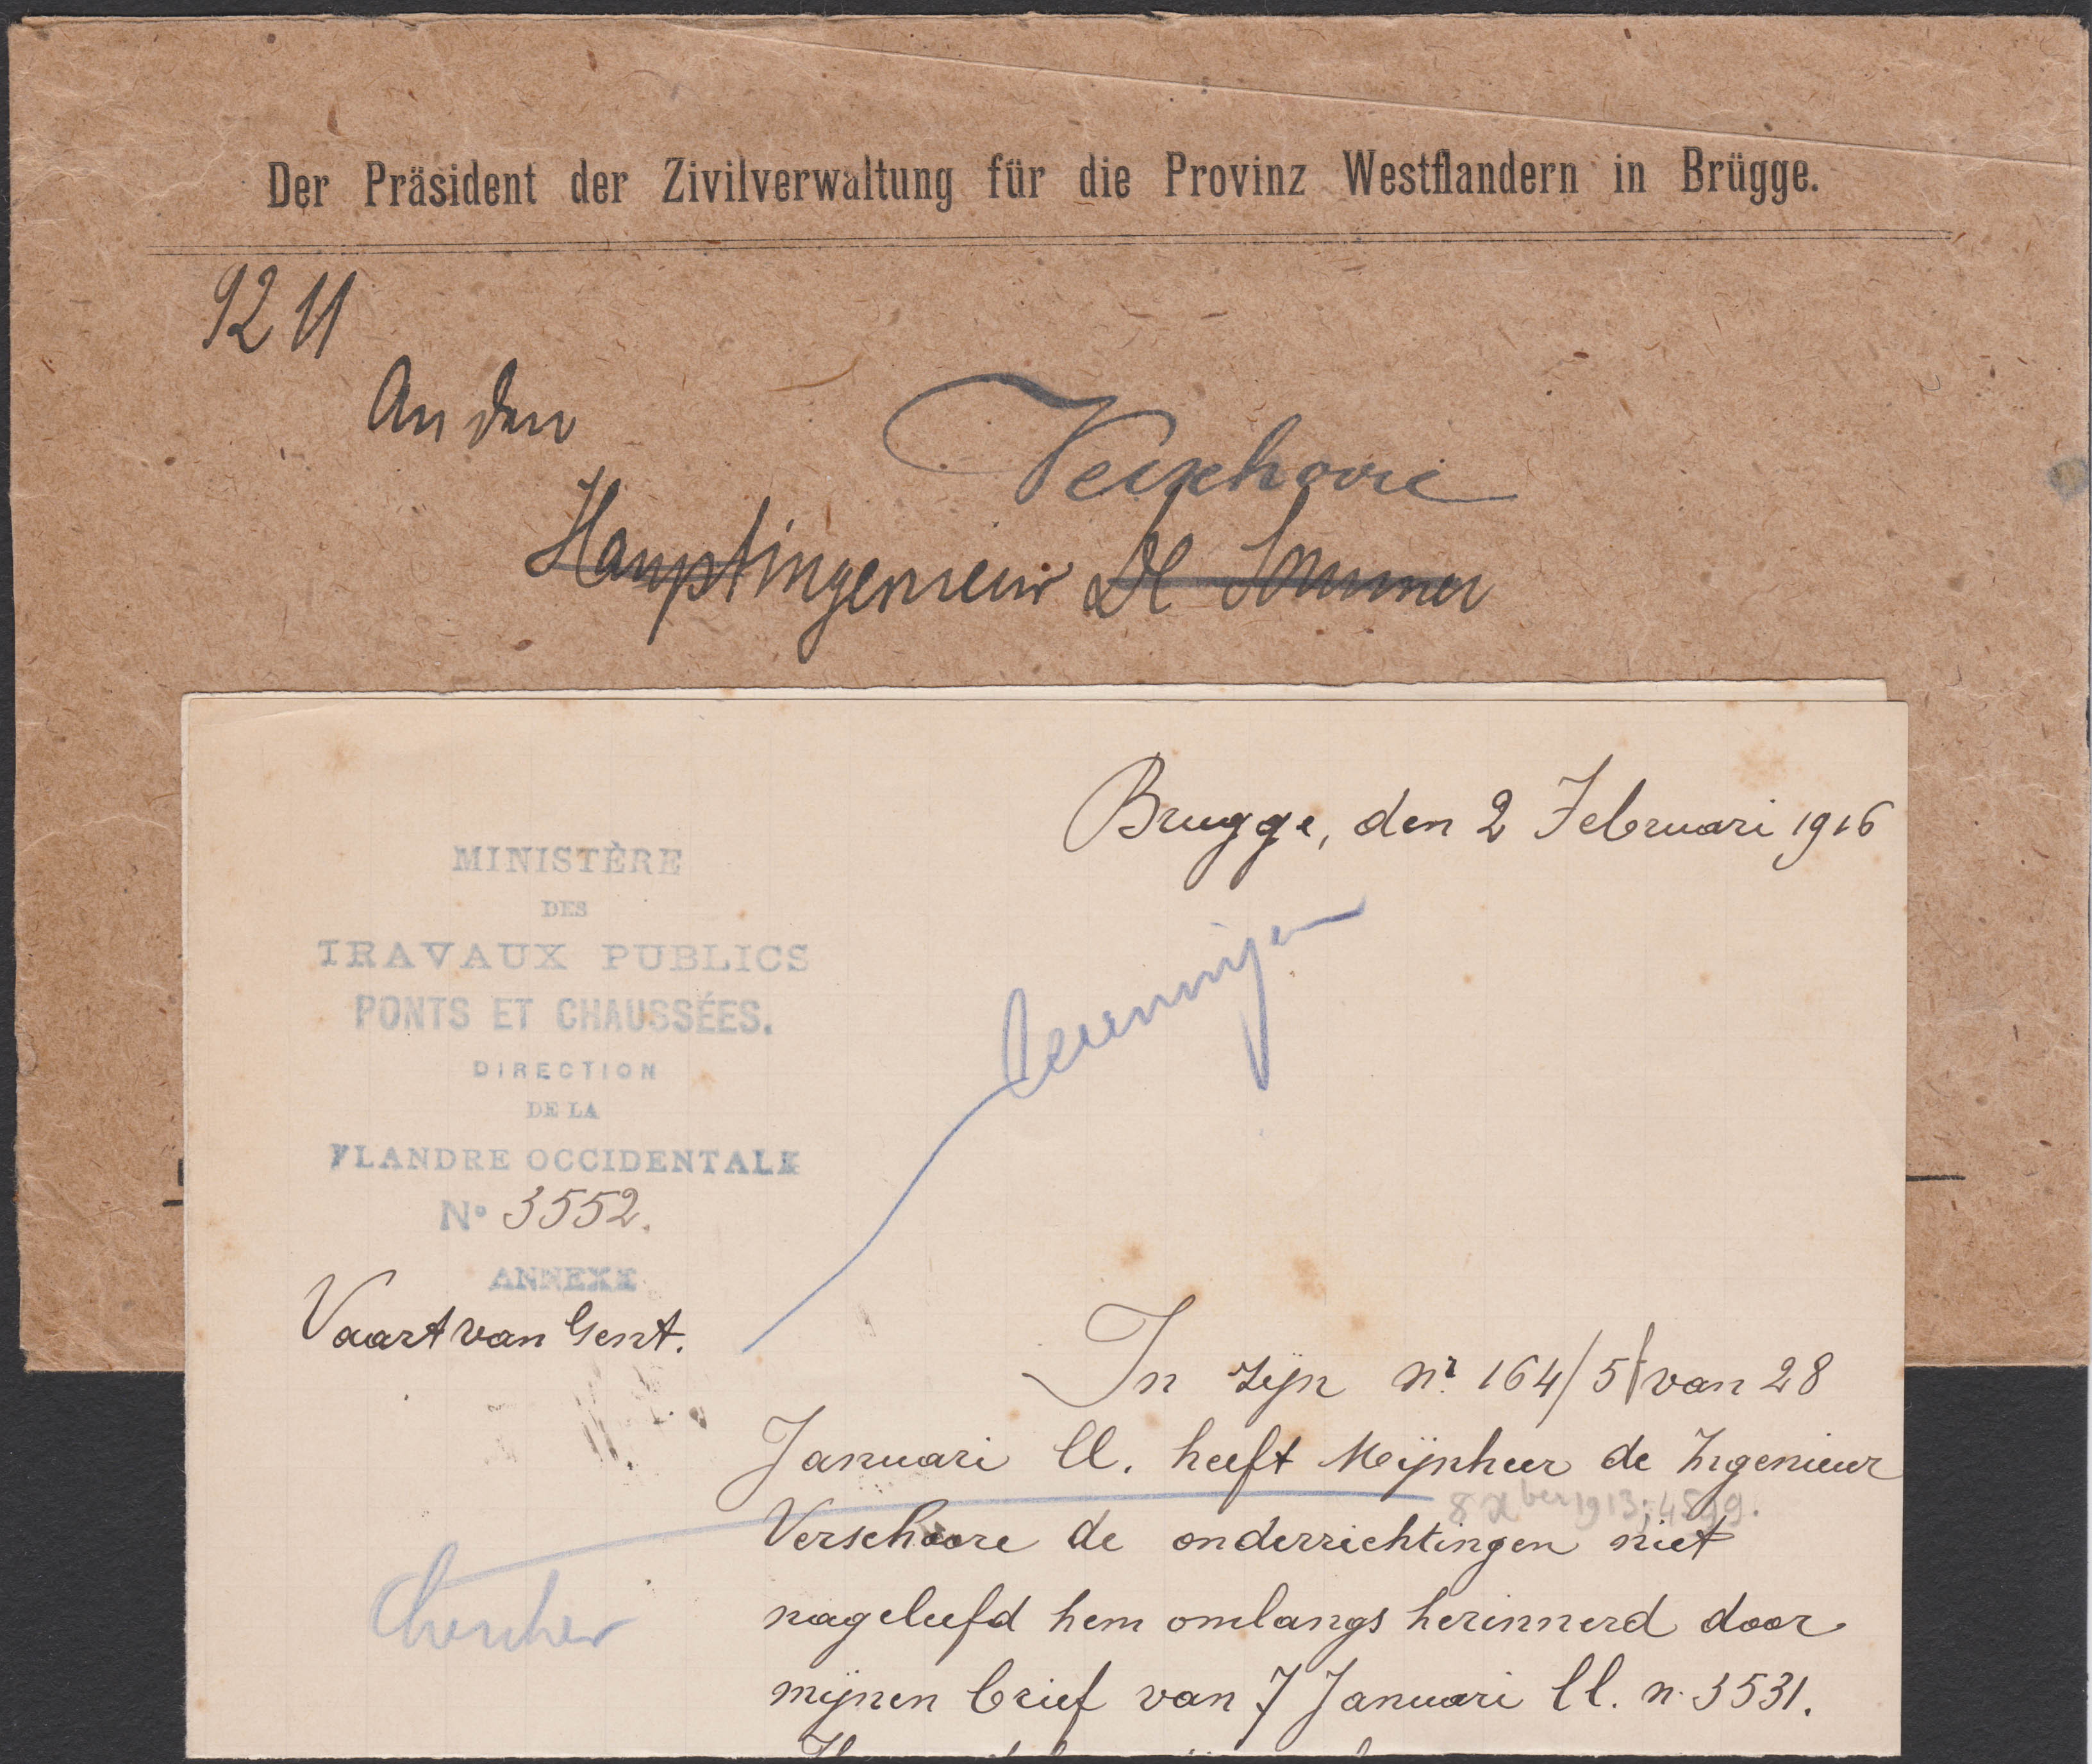 Der Präsident der Zivilverwaltung für die Provinz Westflandern in Brügge.
9211
An den
Verschoore
Hauptingenieur De
Brugge, den 2 Februari 1916
MINISTÈRE
DES
TRAVAUX PUBLICS
PONTS ET CHAUSSÉES.
DIRECTION
DE LA
FLANDRE OCCIDENTALE
N° 3552.
ANNEXE
Vaart van Gent.
In zijn nr 164/5 van 28
Januari ll. heeft Mijnheer de Ingenieur
8 xber 1913; 4599.
Verschoore de onderrichtingen niet
nageleefd hem omlangs herinnerd door
Chercher
mijnen brief van 7 Januari ll. n. 3531.